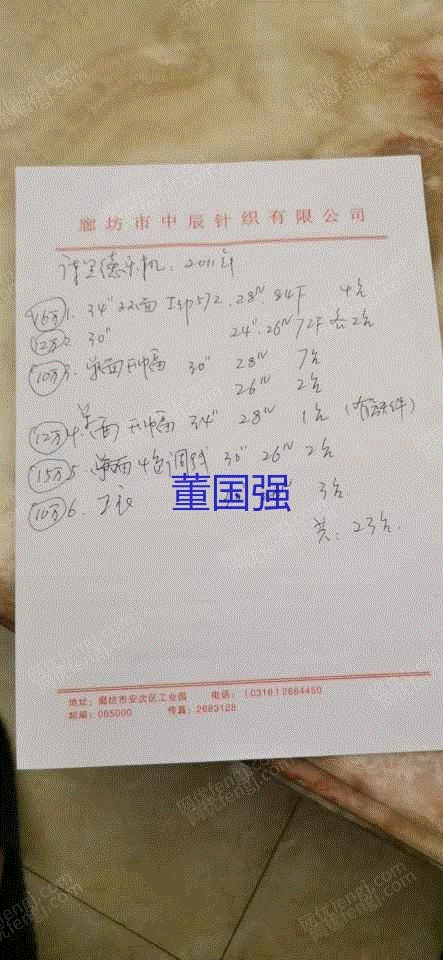 廊坊市中辰针织有限公司
德乐机. 2011年
16万 1. 34" 双面 28N. 84F 4台
12万 2. 30" 24N. 26N 72F 各2台
10万 3. 单面 30" 28N 7台
26N 2台
12万 4. 单面 34" 28N 1台 (有 件)
15万 5. 单面4色调线 30" 26N 2台
10万 6. 3台
董国强
共: 23台.
地址: 廊坊市安次区工业园 电话: (0316) 2684450
邮编: 065000 传真: 2683126